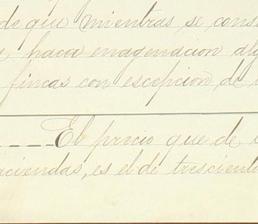 de que mientras se cons
hacer enagenacion al
fincas con escepcion de
El precio que de
aciendas, es el de tresciento